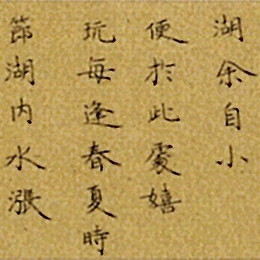 湖余自小
便於此處嬉
玩每逢春夏時
節湖内水漲